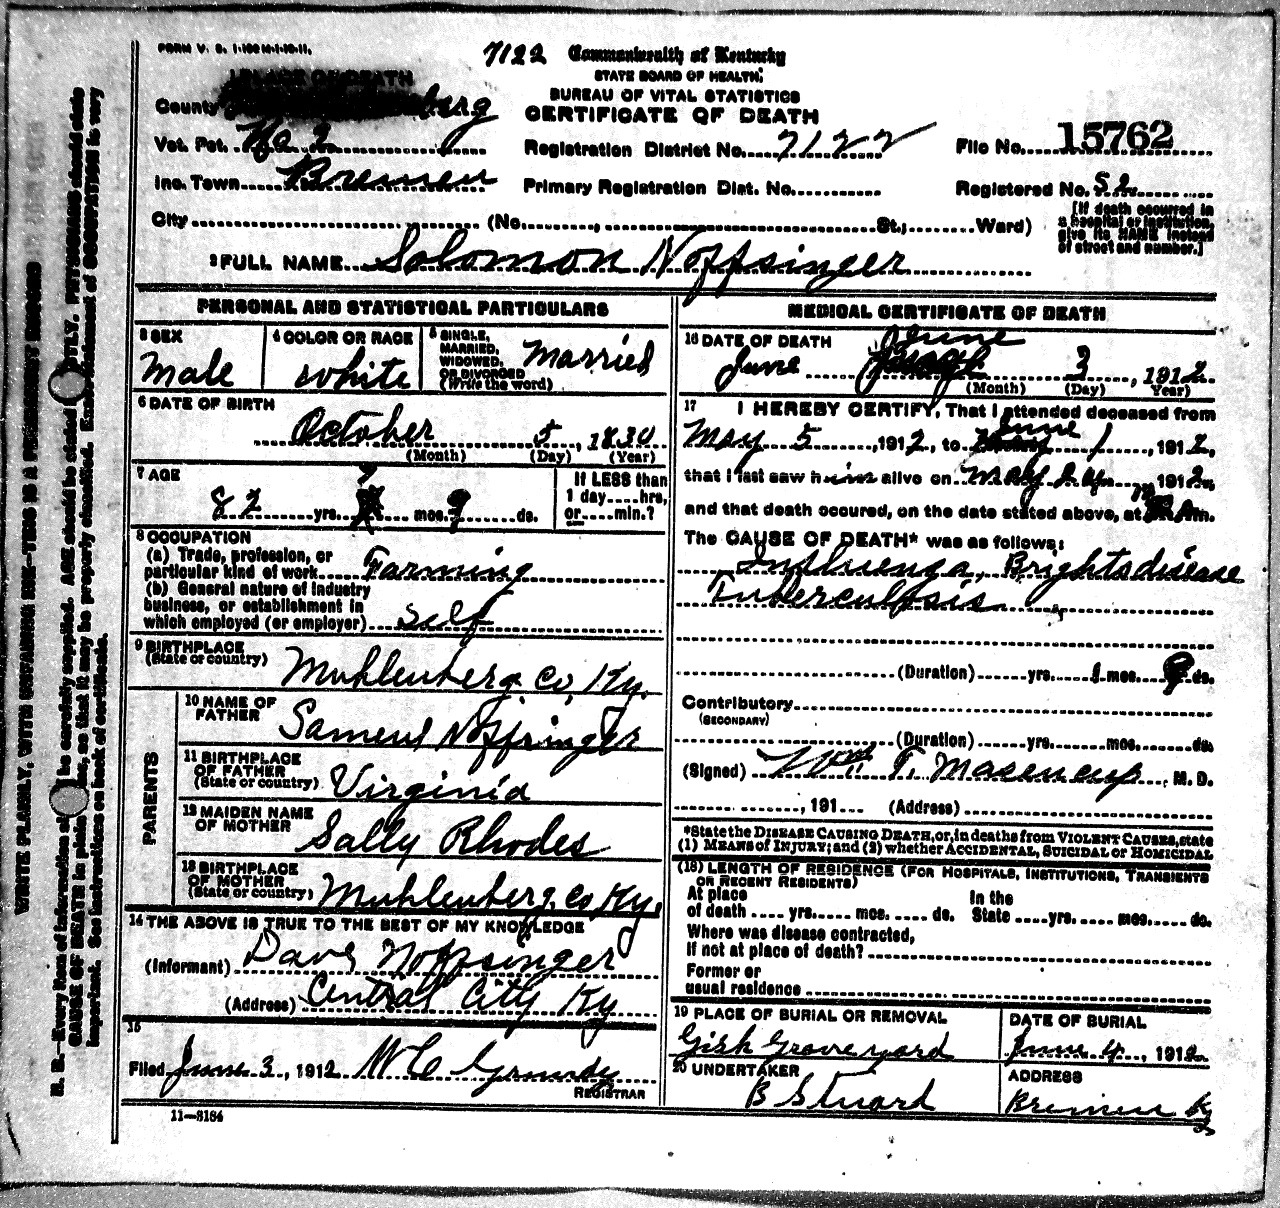 FORM V. S. 1-100 M-1-10-11.
7122 Commonwealth of Kentucky
STATE BOARD OF HEALTH.
BUREAU OF VITAL STATISTICS
CERTIFICATE OF DEATH
1 PLACE OF DEATH
County
Vot. Pct. No 2
Registration District No. 7122
File No. 15762
Inc. Town Bremen
Primary Registration Dist. No.
Registered No. 52
City (No. , St.; Ward)
[If death occurred in a hospital or institution, give its NAME instead of street and number.]
2 FULL NAME Solomon Noffsinger
PERSONAL AND STATISTICAL PARTICULARS
3 SEX
Male
4 COLOR OR RACE
White
5 SINGLE, MARRIED, WIDOWED, OR DIVORCED (Write the word)
Married
6 DATE OF BIRTH
October 5, 1830
(Month) (Day) (Year)
7 AGE
82 yrs. 7 mos. 9 ds.
If LESS than 1 day....hrs, or.....min.?
8 OCCUPATION
(a) Trade, profession, or
particular kind of work Farming
(b) General nature of industry
business, or establishment in
which employed (or employer) Self
9 BIRTHPLACE
(State or country)
Muhlenberg Co, Ky.
PARENTS
10 NAME OF FATHER
Sameul Noffsinger
11 BIRTHPLACE OF FATHER
(State or country) Virginia
12 MAIDEN NAME OF MOTHER
Sally Rhodes
13 BIRTHPLACE OF MOTHER
(State or country) Muhlenberg Co Ky.
14 THE ABOVE IS TRUE TO THE BEST OF MY KNOWLEDGE
(Informant) Dave Noffsinger
(Address) Central City Ky
15
Filed June 3, 1912 W C Grundy
REGISTRAR
11-3184
MEDICAL CERTIFICATE OF DEATH
16 DATE OF DEATH
June
June 3, 1912
(Month) (Day) Year)
17
I HEREBY CERTIFY, That I attended deceased from
June
May 5, 1912, to 1, 1912,
that I last saw him alive on May, 1912,
and that death occured, on the date stated above, at m.
The CAUSE OF DEATH* was as follows:
Influenza, Brights disease
Tuberculosis
(Duration) yrs. 1 mos. 9 ds.
Contributory
(SECONDARY)
(Duration) yrs. mos. ds.
(Signed) T. M. D.
, 191 (Address)
*State the DISEASE CAUSING DEATH, or, in deaths from VIOLENT CAUSES, state
(1) MEANS of INJURY; and (2) whether ACCIDENTAL, SUICIDAL or HOMICIDAL
(18) LENGTH OF RESIDENCE (FOR HOSPITALS, INSTITUTIONS, TRANSIENTS
OR RECENT RESIDENTS)
At place In the
of death yrs. mos. ds. State yrs. mos. ds.
Where was disease contracted,
If not at place of death?
Former or
usual residence
19 PLACE OF BURIAL OR REMOVAL
Gish Graveyard
DATE OF BURIAL
June 4, 1912
20 UNDERTAKER
B Stuard
ADDRESS
Bremen Ky
WRITE PLAINLY, WITH UNFADING INK—THIS IS A PERMANENT RECORD
N. B.—Every item of information should be carefully supplied. AGE should be stated EXACTLY. PHYSICIANS should state
CAUSE OF DEATH in plain terms, so that it may be properly classified. Exact statement of OCCUPATION is very
important. See instructions on back of certificate.